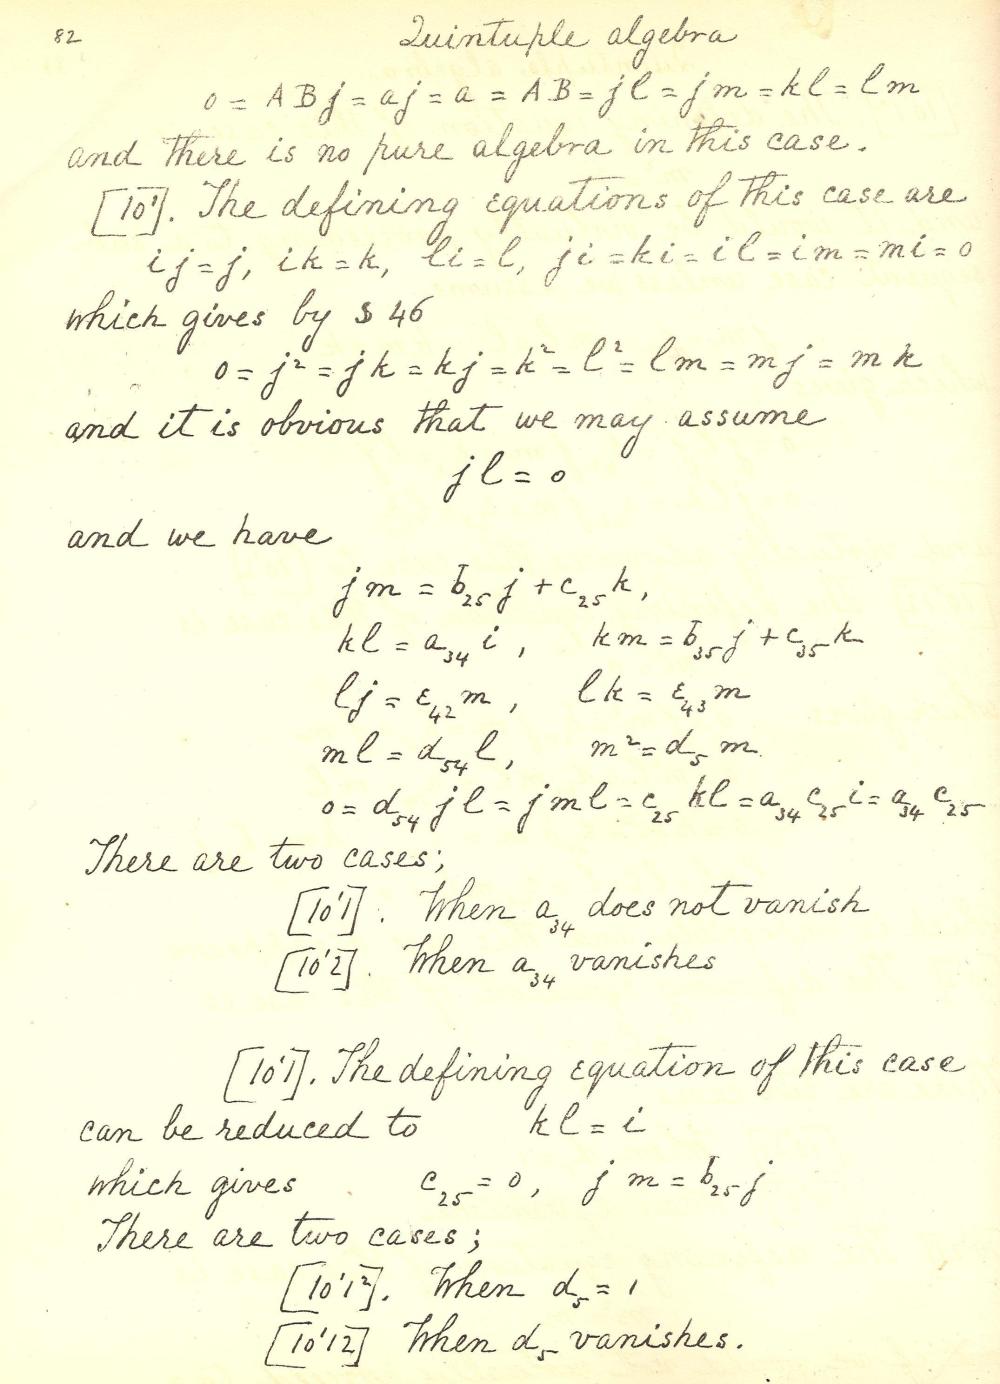 82 Quintuple algebra
0 = ABj = aj = a = AB = jl = jm = kl = lm
and there is no pure algebra in this case.
[10']. The defining equations of this case are
ij = j, ik = k, li = l, ji = ki = il = im = mi = 0
which gives by § 46
0 = j² = jk = kj = k² = l² = lm = mj = mk
and it is obvious that we may assume
jl = 0
and we have
jm = b₂₅j + c₂₅k,
kl = a₃₄i, km = b₃₅j + c₃₅k
lj = ε₄₂m, lk = ε₄₃m
ml = d₅₄l, m² = d₅m
0 = d₅₄jl = jml = c₂₅kl = a₃₄c₂₅i = a₃₄c₂₅
There are two cases;
[10'1]. When a₃₄ does not vanish
[10'2]. When a₃₄ vanishes
[10'1]. The defining equation of this case
can be reduced to kl = i
which gives c₂₅ = 0, jm = b₂₅j
There are two cases;
[10'1²]. When d₅ = 1
[10'12] When d₅ vanishes.